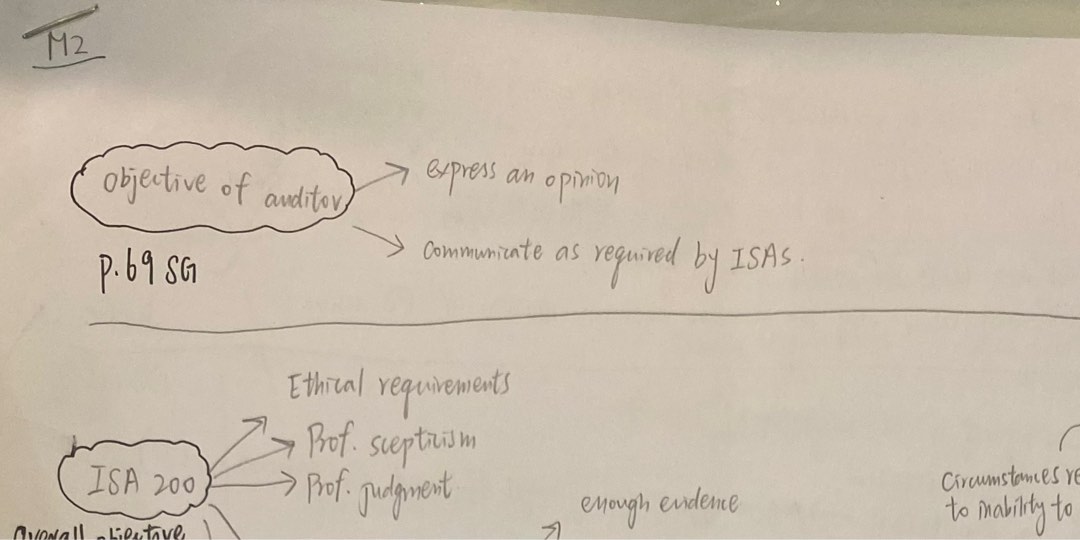 M2
Objective of auditor
express an opinion
Communicate as required by ISAs.
p.69 SG
Ethical requirements
Prof. scepticism
ISA 200
Prof. judgment
enough evidence
Circumstances re
to inability to
Overall objective